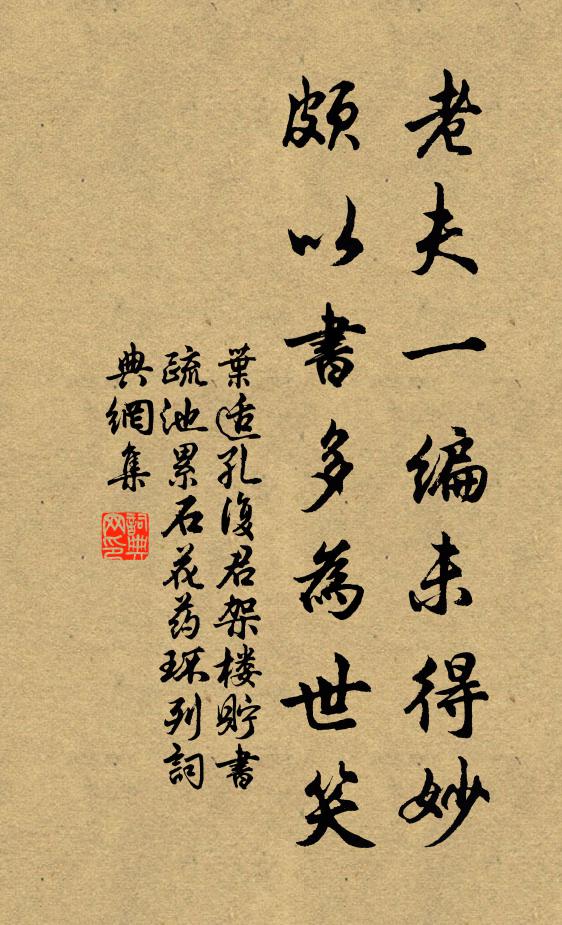 老夫一編未得妙
頗以書多為世笑
葉适孔復君架楼貯書
疏池累石花药环列詞
典網集
詞典
网印